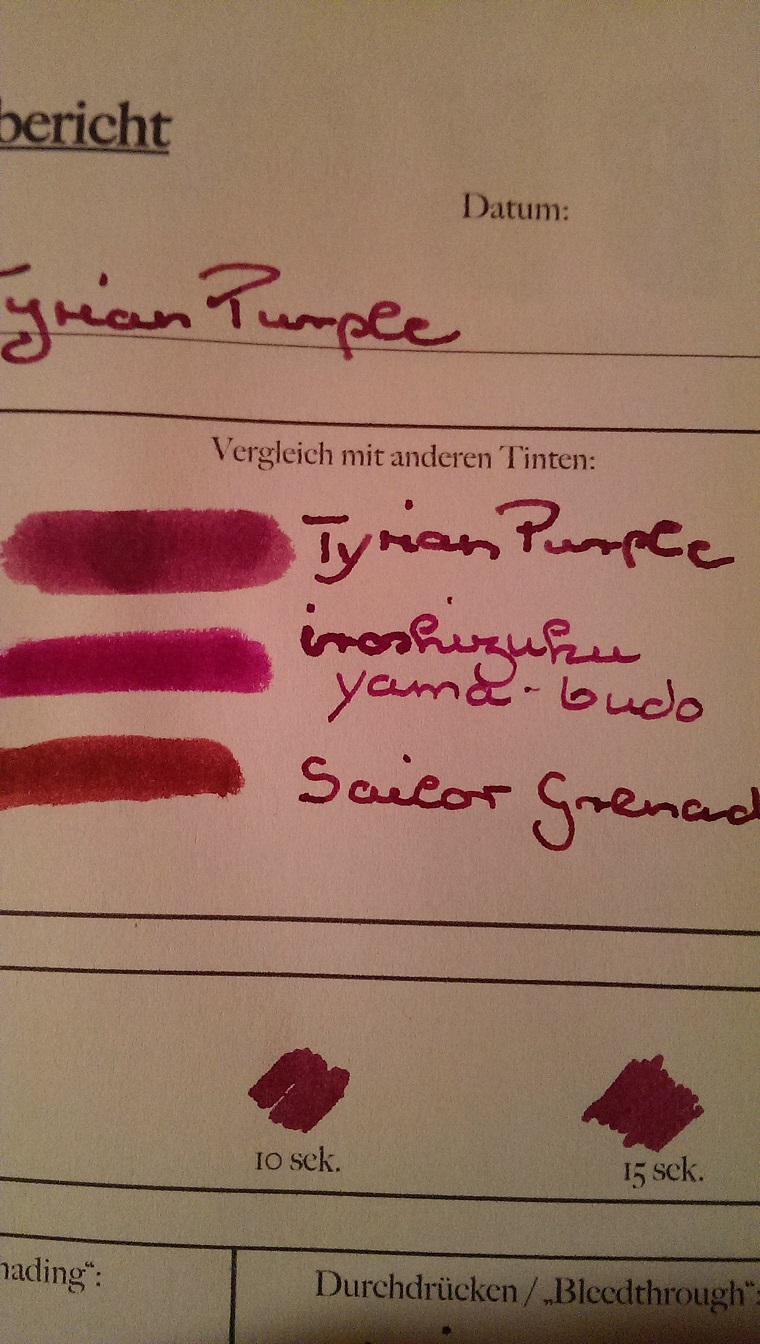 bericht
Datum:
Tyrian Purple
Vergleich mit anderen Tinten:
Tyrian Purple
iroshizuku
yama-budo
Sailor Grenad
10 sek.
15 sek.
hading“:
Durchdrücken / „Bleedthrough“: